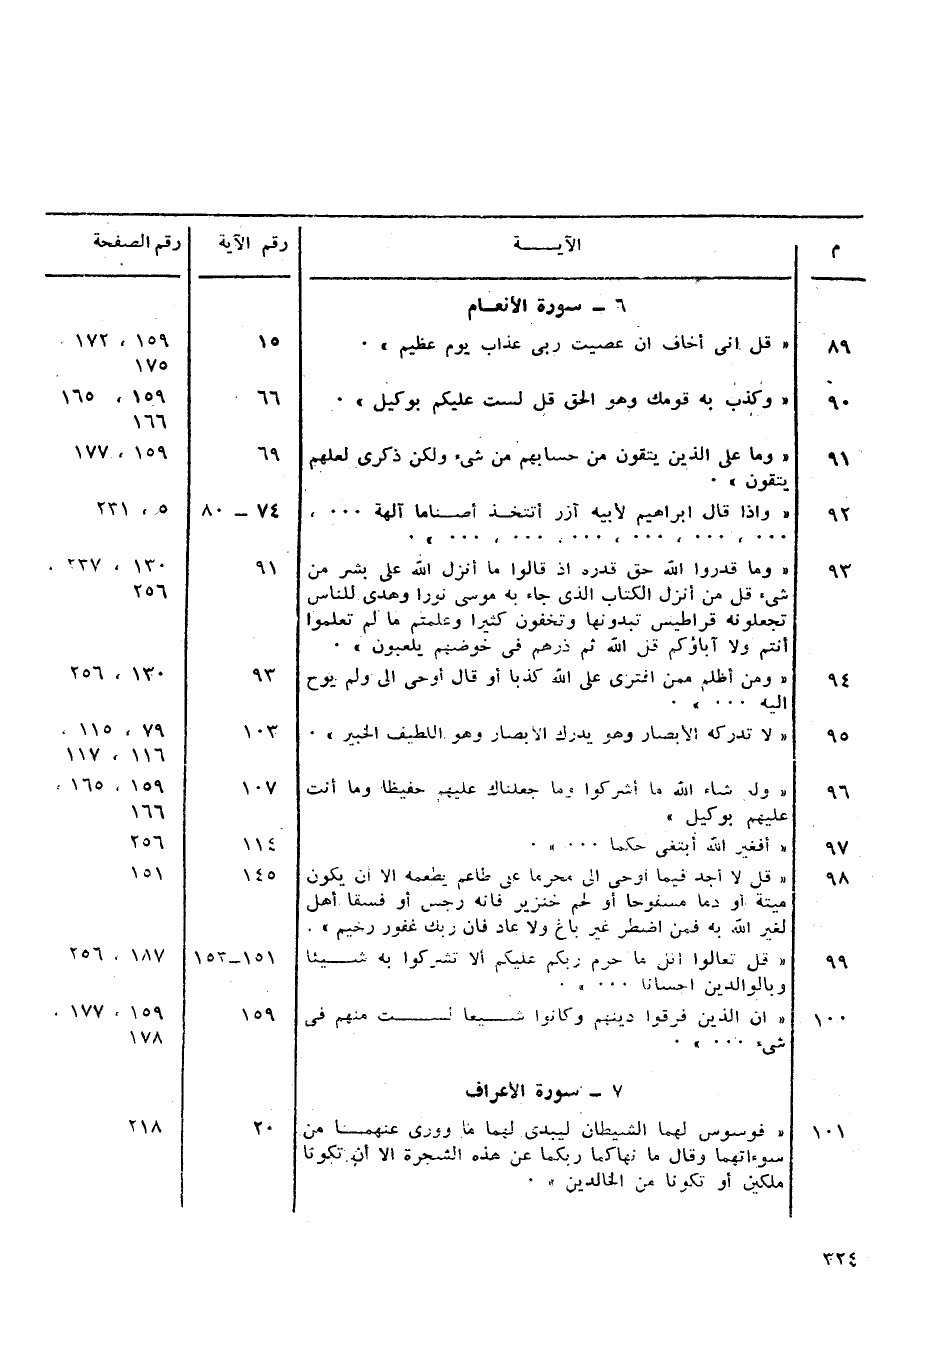 م الآيـــة رقم الآية رقم الصفحة
٦ ــ سورة الأنعـام
٨٩ « قل انى أخاف ان عصيت ربى عذاب يوم عظيم » ٠ ١٥ ١٥٩ ، ١٧٢
١٧٥
٩٠ « وكذب به قومك وهو الحق قل لست عليكم بوكيل » ٠ ٦٦ ١٥٩ ، ١٦٥
١٦٦
٩١ « وما على الذين يتقون من حسابهم من شىء ولكن ذكرى لعلهم ٦٩ ١٥٩ ، ١٧٧
يتقون » ٠
٩٢ « واذا قال ابراهيم لأبيه آزر أتتخـذ أصـناما آلهة ٠٠٠ ، ٧٤ ــ ٨٠ ٥ ، ٢٣١
٠٠٠ ، ٠٠٠ ، ٠٠٠ ، ٠٠٠ ، ٠٠٠ ، ٠٠٠ » ٠
٩٣ « وما قدروا الله حق قدره اذ قالوا ما أنزل الله على بشر من ٩١ ١٣٠ ، ٢٣٧ ،
شىء قل من أنزل الكتاب الذى جاء به موسى نورا وهدى للناس ٢٥٦
تجعلونه قراطيس تبدونها وتخفون كثيرا وعلمتم ما لم تعلموا
أنتم ولا آباؤكم قل الله ثم ذرهم فى خوضهم يلعبون » ٠
٩٤ « ومن أظلم ممن افترى على الله كذبا أو قال أوحى الى ولم يوح ٩٣ ١٣٠ ، ٢٥٦
اليه ٠٠٠ » ٠
٩٥ « لا تدركه الأبصار وهو يدرك الأبصار وهو اللطيف الخبير » ٠ ١٠٣ ٧٩ ، ١١٥ ،
١١٦ ، ١١٧
٩٦ « ولو شاء الله ما أشركوا وما جعلناك عليهم حفيظا وما أنت ١٠٧ ١٥٩ ، ١٦٥ ،
عليهم بوكيل » ١٦٦
٩٧ « أفغير الله أبتغى حكما ٠٠٠ » ٠ ١١٤ ٢٥٦
٩٨ « قل لا أجد فيما أوحى الى محرما على طاعم يطعمه الا أن يكون ١٤٥ ١٥١
ميتة أو دما مسفوحا أو لحم خنزير فانه رجس أو فسقا أهل
لغير الله به فمن اضطر غير باغ ولا عاد فان ربك غفور رحيم » ٠
٩٩ « قل تعالوا اتل ما حرم ربكم عليكم ألا تشركوا به شـــيئا ١٥١ــ١٥٣ ١٨٧ ، ٢٥٦
وبالوالدين احسانا ٠٠٠ » ٠
١٠٠ « ان الذين فرقوا دينهم وكانوا شــيعا لـــست منهم فى ١٥٩ ١٥٩ ، ١٧٧ ،
شىء ٠٠٠ » ٠ ١٧٨
٧ ــ سورة الأعراف
١٠١ « فوسوس لهما الشيطان ليبدى لهما ما وورى عنهمــا من ٢٠ ٢١٨
سوءاتهما وقال ما نهاكما ربكما عن هذه الشجرة الا أن تكونا
ملكين أو تكونا من الخالدين » ٠
٣٢٤